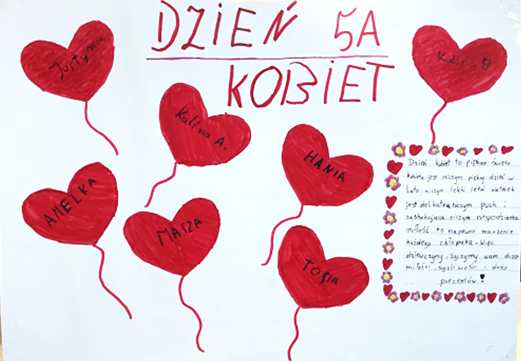 DZIEŃ 5A
KOBIET
Justyna
Kalina B
Kalina A.
HANIA
AMELKA
MASZA
TOSIA
Dzień kobiet to piękne święto
kobieta jest niczym piękny dzień w
lato, niczym lekki letni wiaterek
jest delikatna niczym puch i
zaskakująca niczym niespodzianka
miłość to napewno marzenie
każdego chłopaka. Więc
dziewczyny, życzymy wam dużo
miłości, szczęśliwości i dużo
prezentów!